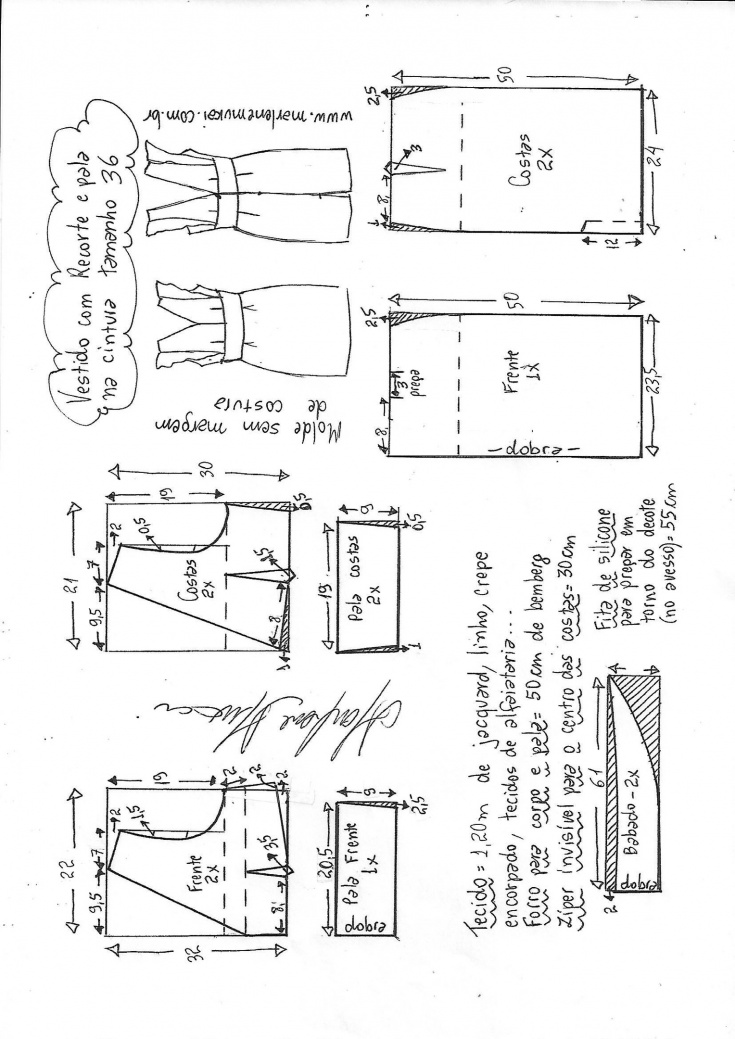 Vestido com Recorte e pala
na cintura tamanho 36
www.marlenemukai.com.br
Molde sem margem
de costura
22
9,5
7
2
1,5
19
2
2
2
32
Frente
2x
3,5
8
21
9,5
7
2
0,5
19
30
Costas
2x
1,5
8
1
0,5
20,5
9
Pala Frente
1x
dobra
2,5
19
9
Pala costas
2x
1
0,5
8
3
prepa
2,5
50
Frente
1x
dobra
23,5
1
8
3
2,5
50
Costas
2x
12
24
Tecido = 1,20m de jacquard, linho, crepe
encorpado, tecidos de alfaiataria...
Forro para corpo e pala = 50cm de bemberg
Zíper invisível para o centro das costas = 30cm
Fita de silicone
para prepar em
torno do decote
(no avesso) = 55cm
61
2
Babado - 2x
dobra